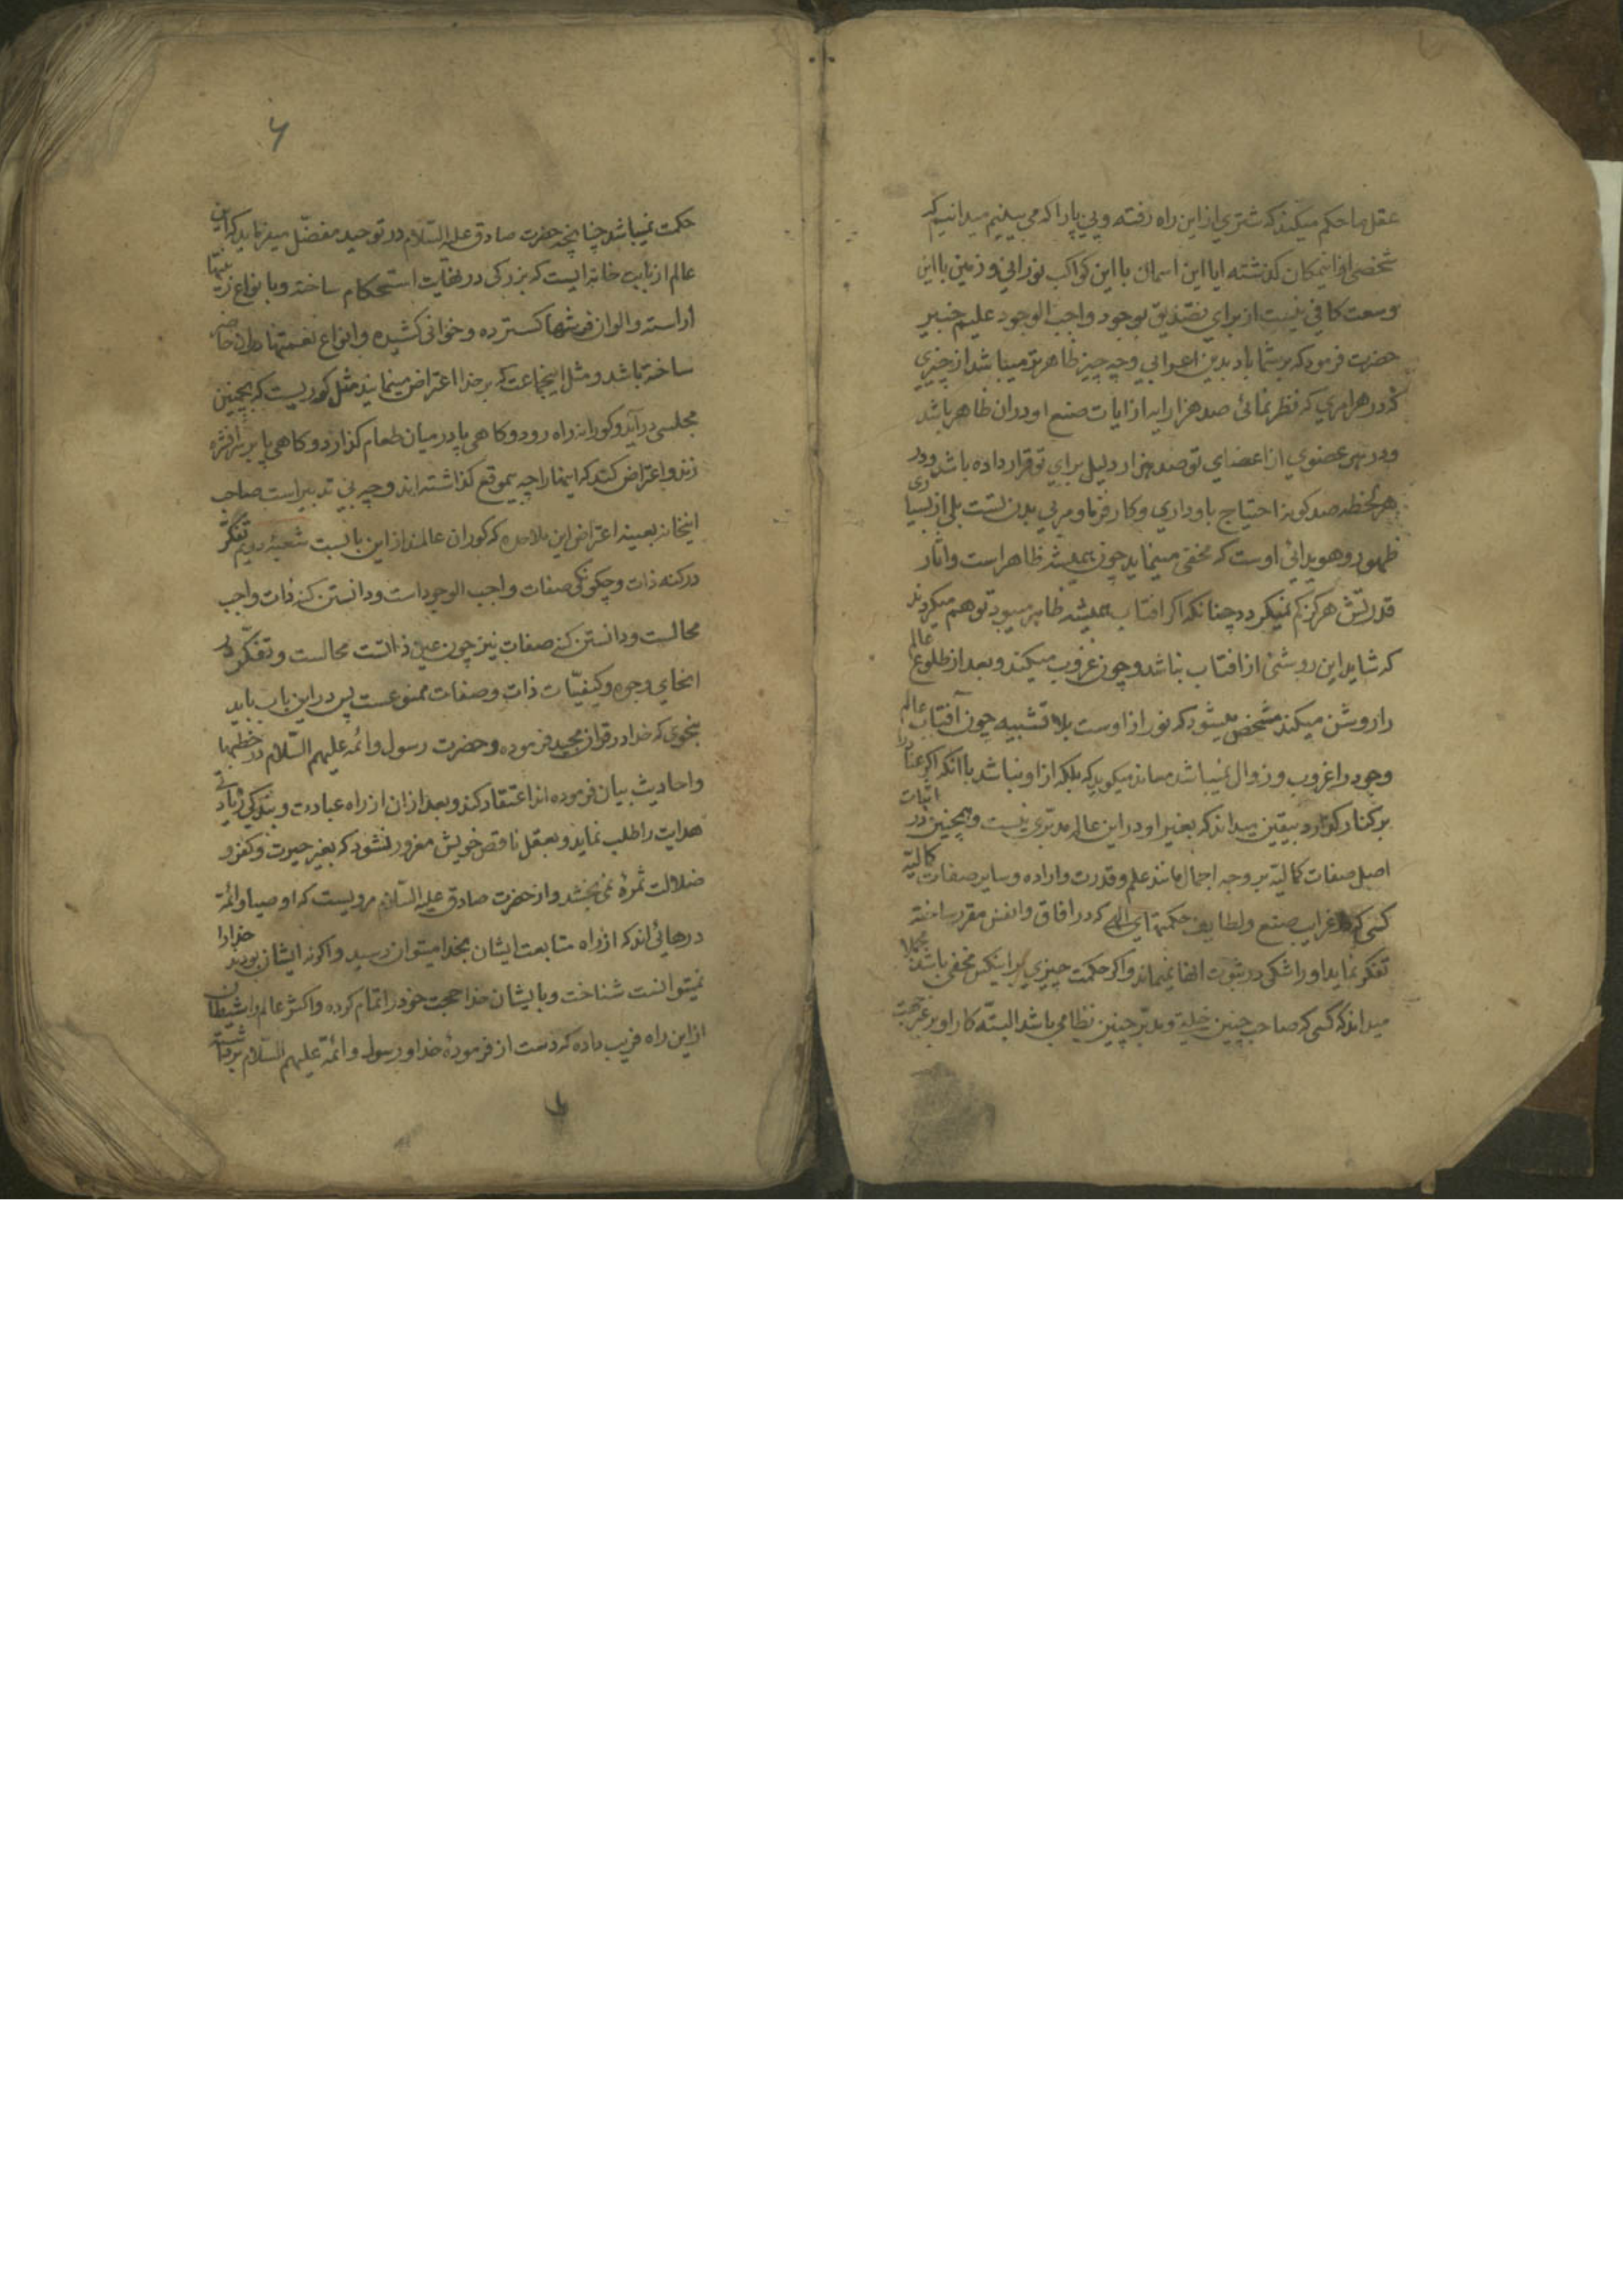 عقل ما حکم میکند که شتری از این راه رفته و پی پا را که می بینیم میدانیم که
شخصی از اینمکان گذشته ایا این اسمان با این کواکب نورانی و زمین با این
وسعت کافی نیست از برای تصدیق بوجود واجب الوجود علیم خبیر
حضرت فرمود که بر شما باد بدین اعرابی و چه چیز ظاهرتو میباشد از چیزی
که در هر امری که نظر نمائی صد هزار ایه از ایات صنع او در ان ظاهر باشد
و در هر عضوی از اعضای تو صد هزار دلیل برای تو قرار داده باشد و در
هر لحظه صد کونه احتیاج باو داری و کارفرما و مربی بدن تست بلی از بسیاری
ظهور و هویدائی اوست که مخفی مینماید چون همیشه ظاهر است و اثار
قدرتش هرگز کم نمیکردد چنانکه اکر افتاب همیشه ظاهر میبود توهم میکردند
که شاید این روشنی از افتاب نباشد و چون غروب میکند و بعد از طلوع عالم
را روشن میکند مشخص میشود که نور از اوست بلا تشبیه چون آفتاب عالم
وجود را غروب و زوال نمیباشد معاند میکوید که بلکه از او نباشد با انکه اکر عناد را
بر کنار کذارد بیقین میداند که بغیر او در این عالم مدبری نیست و همچنین در اثبات
اصل صفات کمالیه بر وجه اجمال مانند علم و قدرت و اراده و سایر صفات کمالیه
کسی که در غرایب صنع و لطایف حکمتهای الهی که در افاق و انفس مقرر ساخته
تفکر نماید او را شکی در ثبوت انها نمیماند و اکر حکمت چیزی بر اینکس مخفی باشد مجملا
میداند که کسی که صاحب چنین خلیقه و مدبر چنین نظامی باشد البته کار او بر غیر جهت
۶
حکمت نمیباشد چنانچه حضرت صادق علیه السّلام در توحید مفضّل میفرماید که این
عالم از بابت خانه ایست که بزرکی در نهایت استحکام ساخته و بانواع زینتها
آراسته و الوان فرشها کسترده و خوانی کشیده و انواع نعمتها در ان حاضر
ساخته باشد و مثل اینجماعت که بر خدا اعتراض مینمایند مثل کوریست که بچنین
مجلسی درآید و کورانه راه رود و کاهی پا در میان طعام کذارد و کاهی پا بر ظرفی
زند و اعتراض کند که اینها را چه بیموقع کذاشته اند و چه بی تدبیر است صاحب
اینخانه بعینه اعتراض این ملاحده که کوران عالمند از این بابست شعبهٔ دویم تفکر
در کنه ذات و چکونکی صفات واجب الوجود است و دانستن کنه ذات واجب
محالست و دانستن کنه صفات نیز چون عین ذاتست محالست و تفکر در
انحای وجوه و کیفیّات ذات و صفات ممنوعست پس در این باب باید
بنحوی که خدا در قران مجید فرموده و حضرت رسول و ائمه علیهم السّلام در خطبها
و احادیث بیان فرموده اند اعتقاد کند و بعد از ان از راه عبادت و بندکی زیادتی
هدایت را طلب نماید و بعقل ناقص خویش مغرور نشود که بغیر حیرت و کفر و
ضلالت ثمرهٔ نمی بخشد و از حضرت صادق علیه السّلام مرویست که اوصیا و ائمّه
درهائی اند که از راه متابعت ایشان بخدا میتوان رسید و اکر نه ایشان بودند خدا را
نمیتوانست شناخت و بایشان خدا حجت خود را تمام کرده و اکثر عالم را شیطان
از این راه فریب داده که دست از فرمودهٔ خدا و رسول و ائمّه علیهم السّلام برداشته